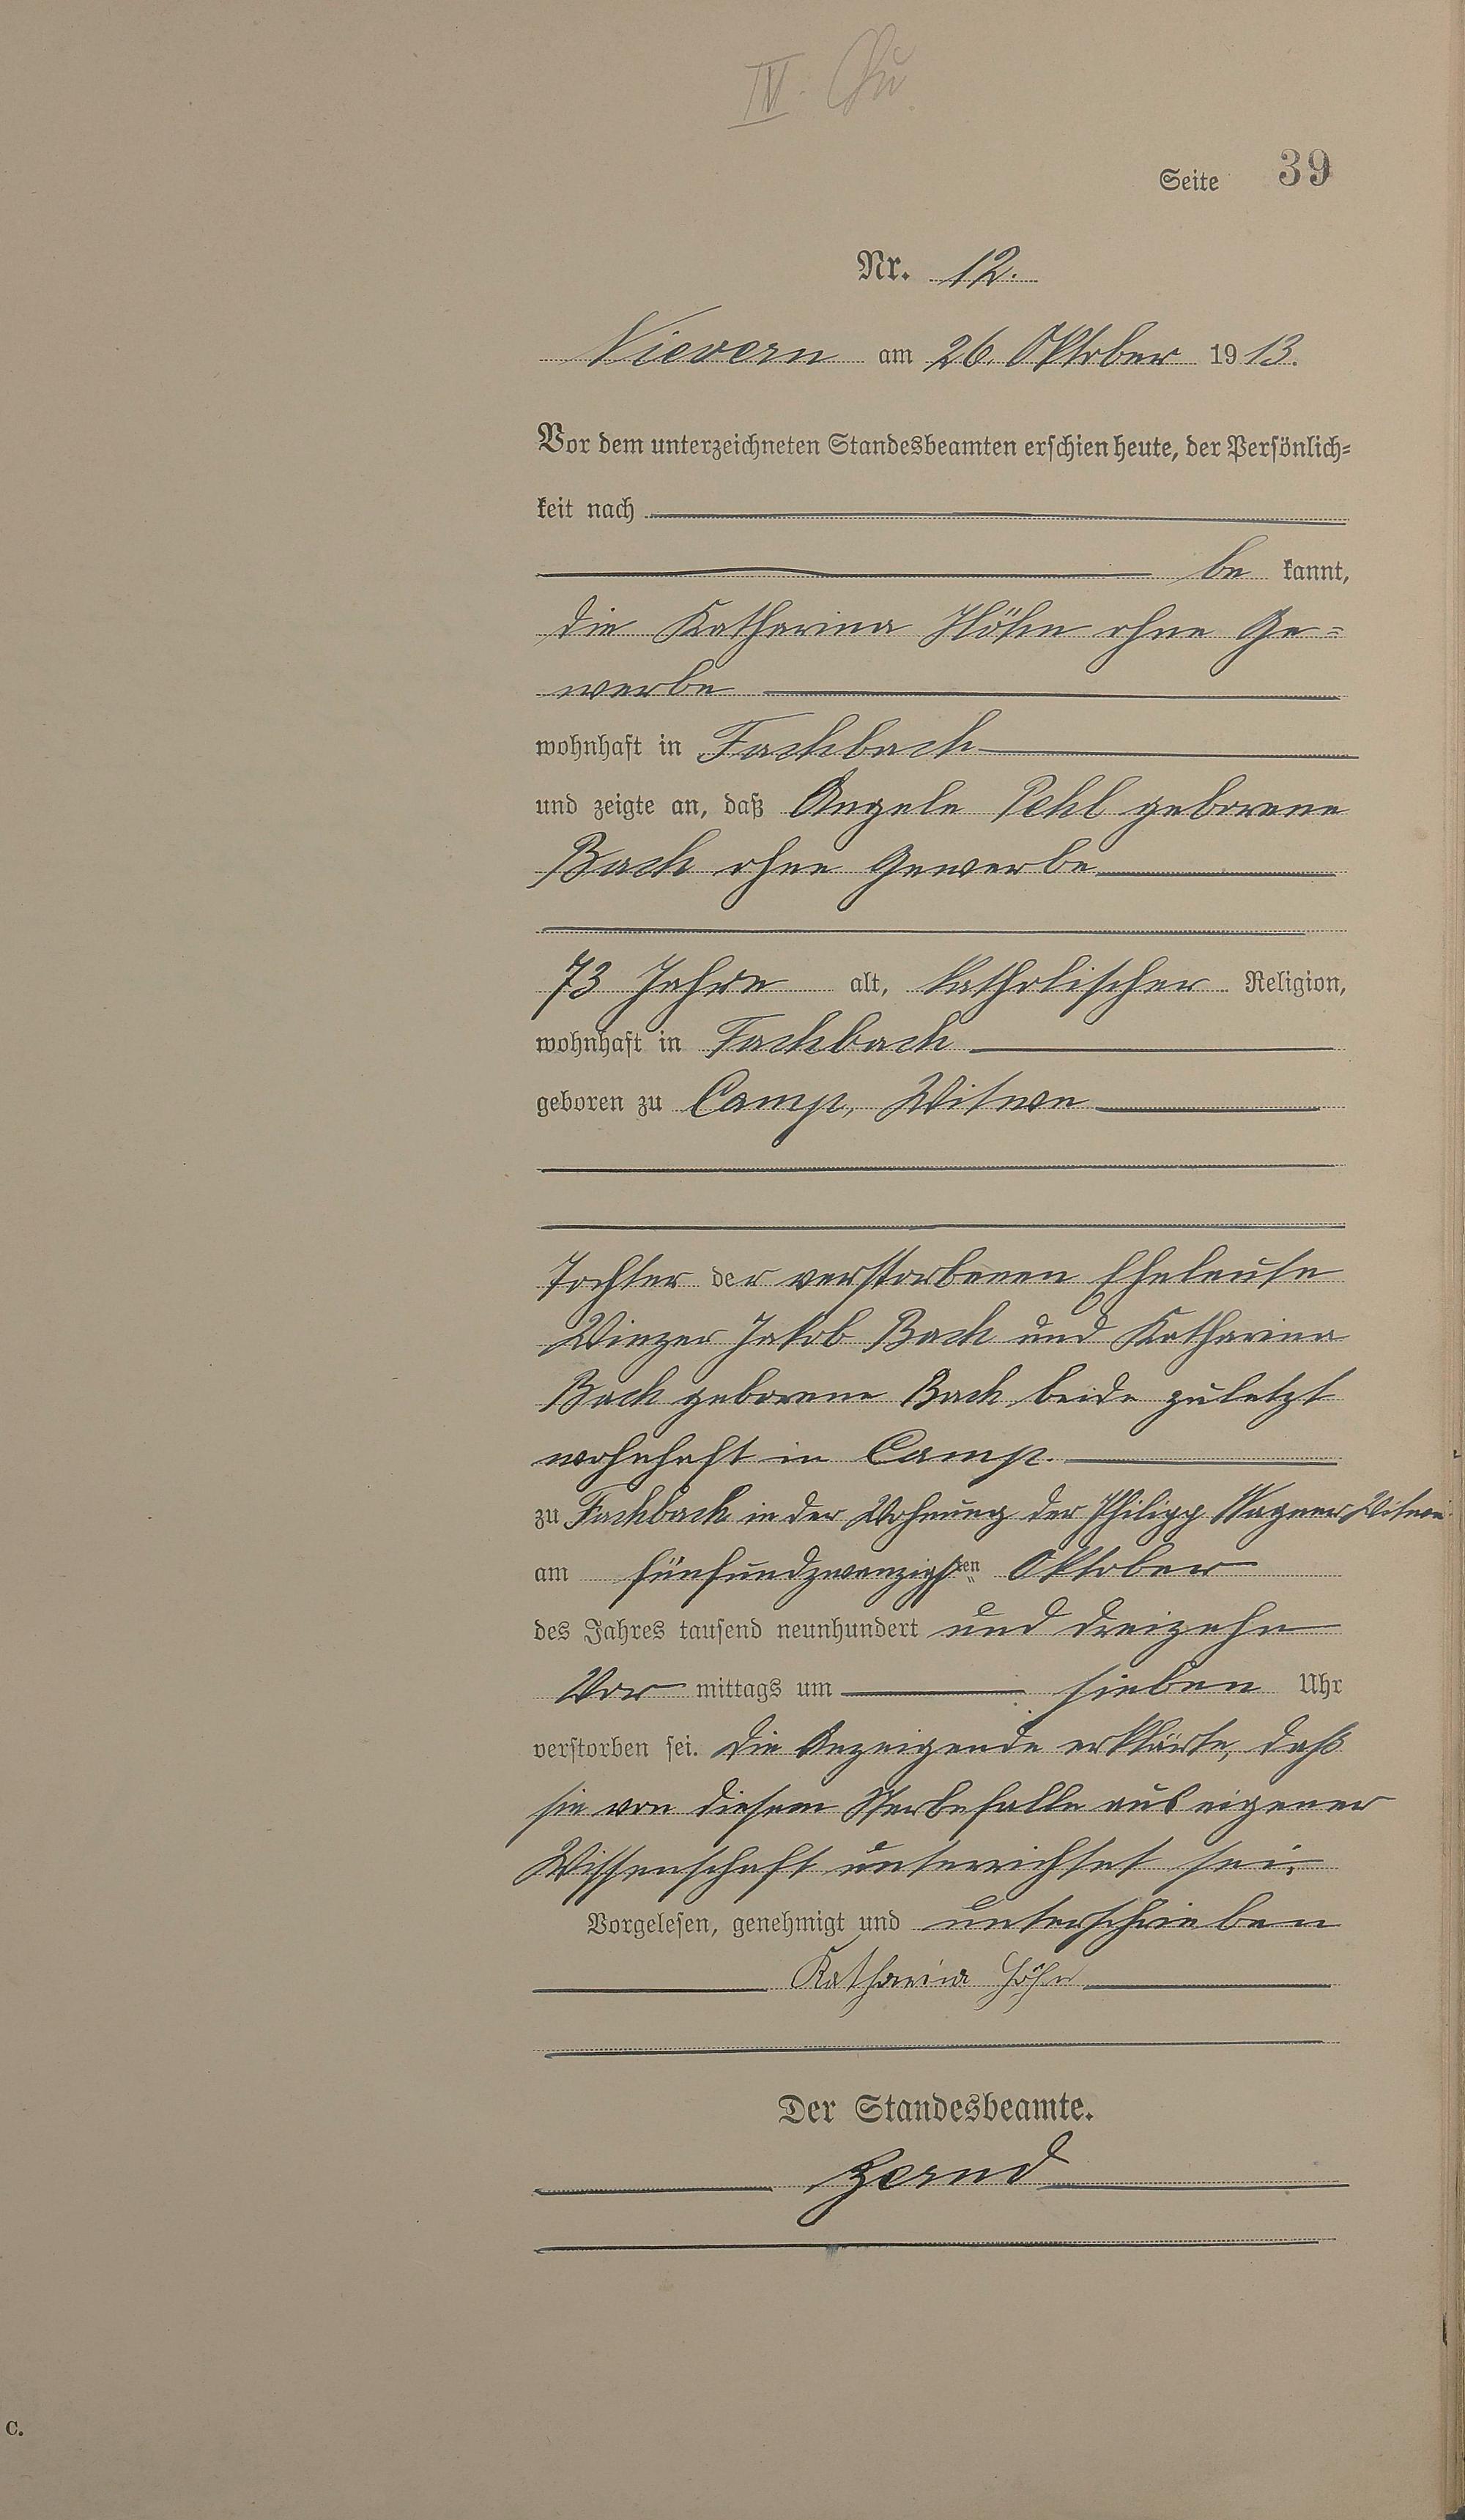 IV.
Seite 39
Nr. 12.
Nievern am 26. Oktober 1913.
Vor dem unterzeichneten Standesbeamten erschien heute, der Persönlich-
keit nach
be kannt,
die Katharina Höhn ohne Ge-
werbe
wohnhaft in Fachbach
und zeigte an, daß Angela Pehl geborene
Bach ohne Gewerbe
73 Jahre alt, katholischer Religion,
wohnhaft in Fachbach
geboren zu Camp, Witwe
Tochter der verstorbenen Eheleute
Winzer Jakob Bach und Katharina
Bach geborene Bach beide zuletzt
wohnhaft in Camp.
zu Fachbach in der Wohnung der Philipp Wagner Witwe
am fünfundzwanzigsten Oktober
des Jahres tausend neunhundert und dreizehn
Vor mittags um sieben Uhr
verstorben sei. Die Anzeigende erklärte, daß
sie von diesem Sterbefalle aus eigener
Wissenschaft unterrichtet sei.
Vorgelesen, genehmigt und unterschrieben
Katharina Höhn
Der Standesbeamte.
Zernd
C.